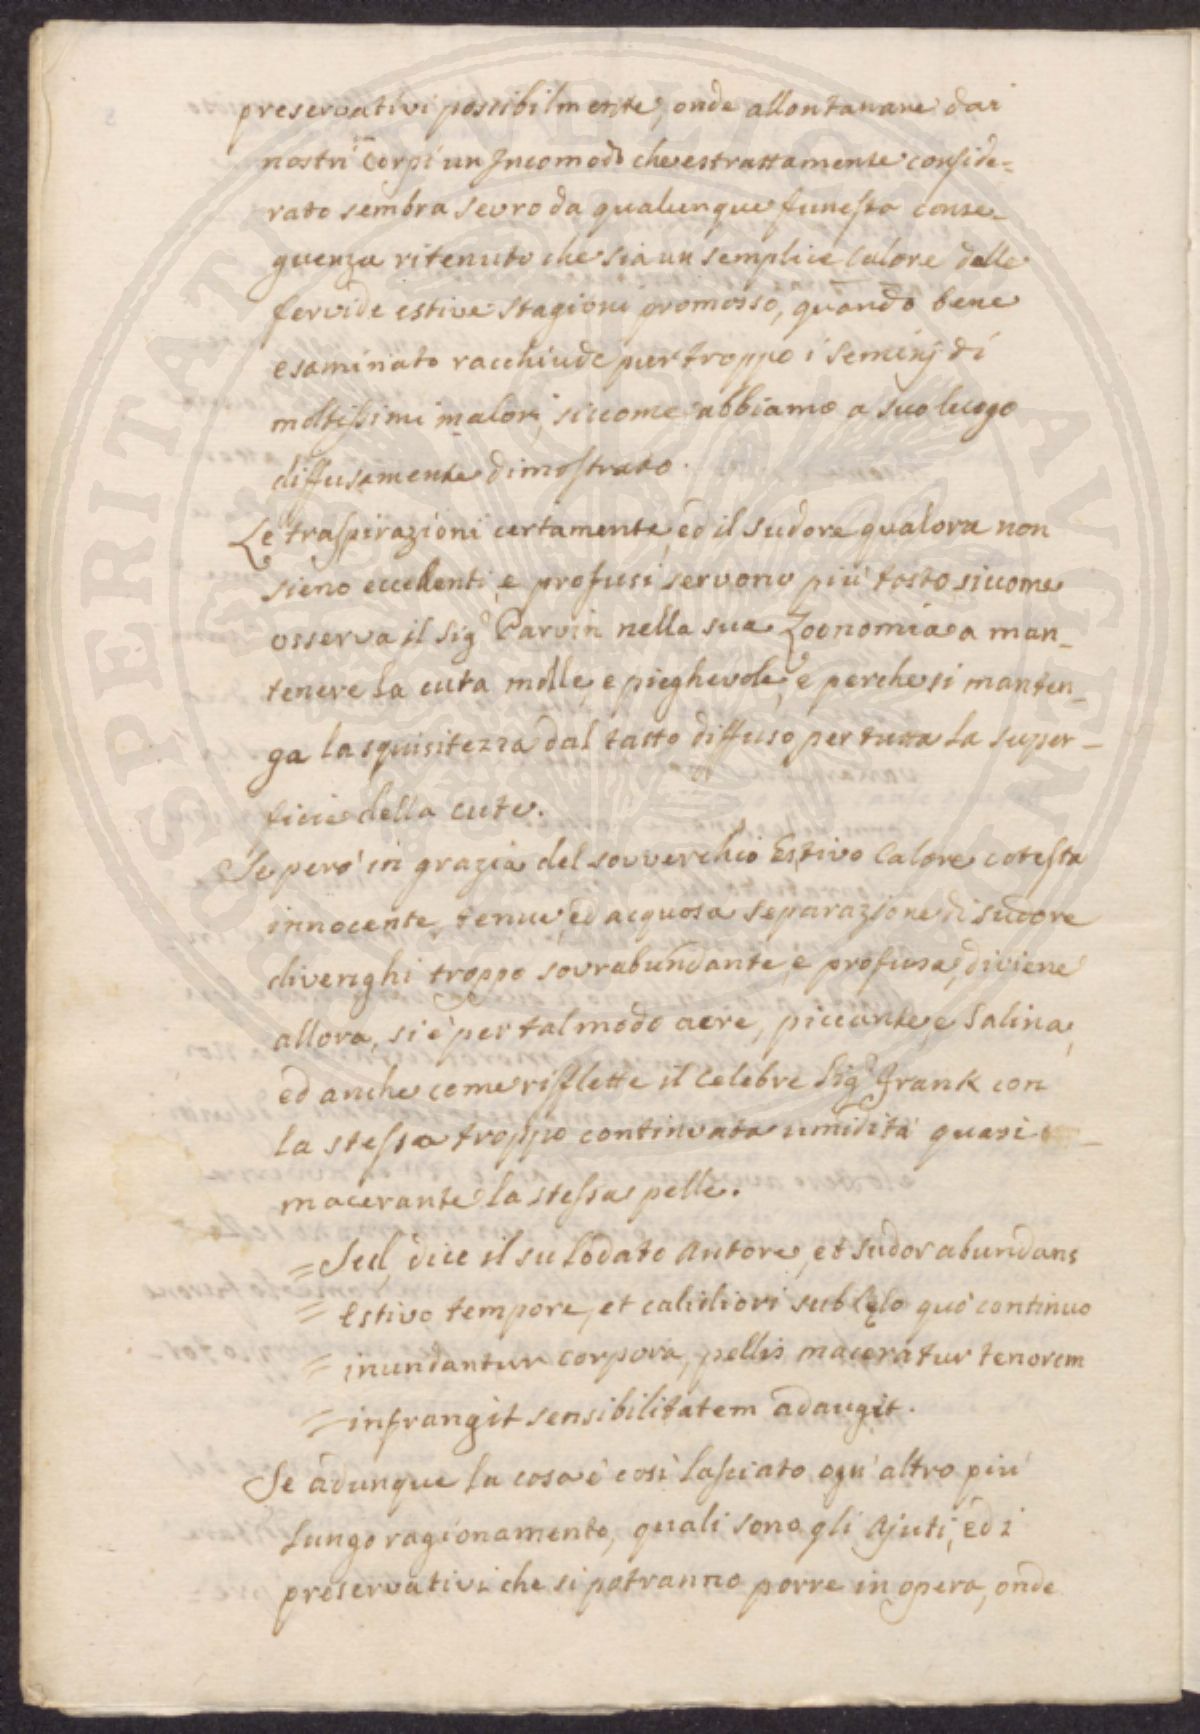 preservativi possibilmente, onde allontanare dai
nostri Corpi un Incomodo che estrattamente conside=
rato sembra sevro da qualunque funesta conse=
guenza ritenuto che sia un semplice Calore dalle
fervide estive stagioni promosso, quando bene
esaminato racchiude pur troppo i seminj di
moltissimi malori, siccome abbiamo a suo luogo
diffusamente dimostrato.
Le traspirazioni certamente, ed il sudore qualora non
sieno eccedenti, e profusi servono più tosto siccome
osserva il Sig.r Darvin nella sua Zoonomia a man=
tenere la cuta molle, e pieghevole, e perche si manten=
ga la squisitezza dal tatto diffuso per tutta la super=
ficie della cute.
Se però in grazia del sovverchio Estivo Calore cotesta
innocente, tenue, ed acquosa separazione di sudore
divenghi troppo sovrabundante, e profusa, diviene
allora, si è per tal modo acre, piccante, e Salina,
ed anche come riflette il Celebre Sig.r Frank con
la stessa troppo continvata umidità quasi
macerante la stessa pelle.
= Sed, dice il su Lodato Autore, et sudor abundans
= Estivo tempore, et calidiori sub Celo quò continuo
= inundantur corpora, pellis maceratur tenorem
= infrangit sensibilitatem adaugit.
Se adunque la cosa è così lasciato ogn' altro più
Lungo ragionamento, quali sono gli Ajuti, Ed i
preservativi che si potranno porre in opera, onde
SPERITATI PUBLICÆ AUGENDÆ